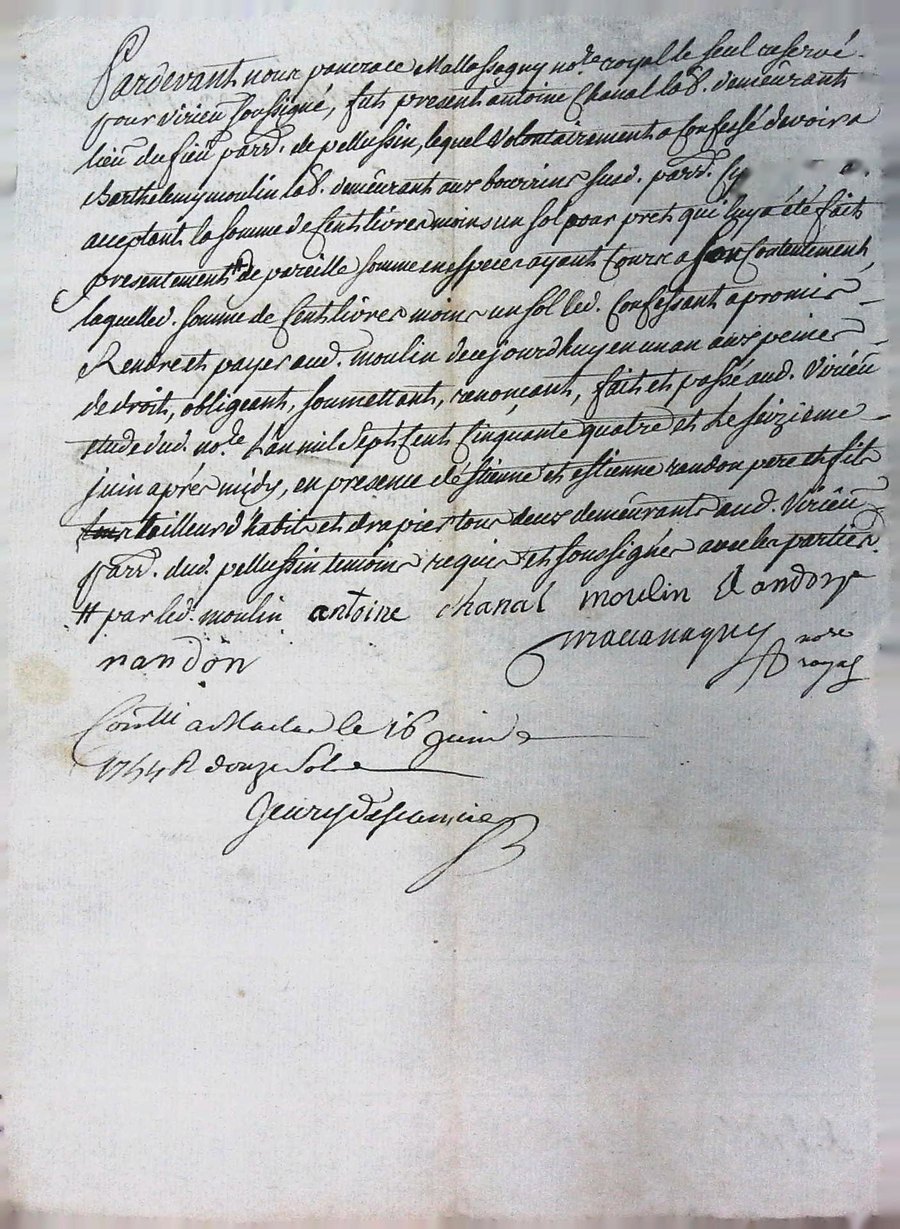 Pardevant nous pancrace Mallassagny no.re royal le seul reservé
pour virieu soussigné, fut present antoine Chanal lab.r demeurant
lieu du fieu parr.e de pellussin, lequel volontairement a Confessé devoir a
Barthelemy moulin lab.r demeurant aux bourrins susd. parr.e Cy
acceptant la somme de Cent livres moins un sol pour pret qui luy a été fait
presentement # de pareille somme en especes ayant Cours a son Contentement,
laquelled. somme de Cent livres moins un sol led. Confessant a promis
Rendre et payer aud. moulin decejourdhuy en un an aux peines
de droit, obligeant, soumettant, renoncant, fait et passé aud. Virieu
etude dud. no.re Lan mil Sept Cent Cinquante quatre et Le Seizieme
juin aprés midy, en presence d'Estienne et estienne randon pere et fils
tailleur d'habits et drapier tous deux demeurants aud. Virieu
parr.e dud. pellussin temoins requis et soussignés avec les parties.
# par led. moulin antoine chanal moulin Randon
nore
randon royal
Con.lle a Maclas le 16 juin
1754 R douze Sols